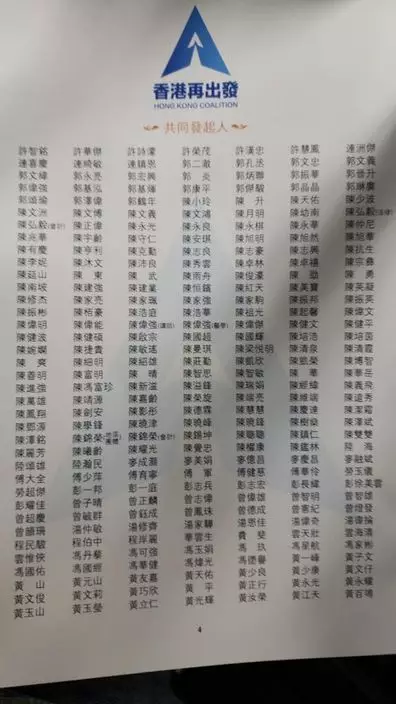 香港再出發
HONG KONG COALITION
共同發起人
許智銘 許華傑 許詩濛 許榮茂 許漢忠 許慧鳳 連洲傑
連喜慶 連綺敏 連鎮恩 郭二澈 郭孔丞 郭文忠 郭文義
郭文緯 郭永亮 郭宏興 郭炎 郭炳聯 郭振華 郭晉升
郭偉強 郭基泓 郭基煇 郭康平 郭傑駿 郭晶晶 郭琳廣
郭頌瑜 郭澤偉 郭鶴年 陳小玲 陳升 陳天佑 陳少波
陳文洲 陳文博 陳文義 陳文鴻 陳月明 陳幼南
陳弘毅(會計) 陳正偉 陳永光 陳永良 陳永棋 陳永華 陳仲尼
陳兆華 陳宇齡 陳守仁 陳安琪 陳旭明 陳旭然 陳旭華
陳有慶 陳亨利 陳克勤 陳志良 陳志豪 陳志興 陳抗生
陳李妮 陳沐文 陳沛良 陳秀雲 陳卓林 陳卓禧 陳宗彝
陳延山 陳東 陳武 陳雨舟 陳俊濠 陳勁 陳勇
陳南坡 陳建強 陳建業 陳恒鑌 陳紅天 陳美寶 陳英凝
陳修杰 陳家亮 陳家珮 陳家強 陳家駒 陳振邦 陳振英
陳振彬 陳栢豪 陳浩庭 陳浩華 陳祖光 陳起馨 陳健文
陳偉明 陳偉能 陳偉強 陳偉強(醫學) 陳偉傑 陳健文 陳健平
陳健波 陳健碩 陳啟宗 陳國超 陳國輝 陳培浩 陳培茵
陳婉嫻 陳捷貴 陳敏瑤 陳曼琪 陳梁悅明 陳清泉 陳清霞
陳爽 陳細明 陳紹雄 陳莊勤 陳凱欣 陳凱榮 陳博智
陳善明 陳富明 陳晴 陳智思 陳智敏 陳華 陳華岳
陳進強 陳馮富珍 陳新滋 陳溢鋒 陳瑞娟 陳經緯 陳義飛
陳萬雄 陳靖源 陳嘉齡 陳榮旋 陳端亮 陳維端 陳遠秀
陳鳳翔 陳劍安 陳影彤 陳德霖 陳慧慧 陳慶達 陳潔霜
陳鄧源 陳學鋒 陳曉津 陳曉鋒 陳曉峰 陳樹燊 陳澤斌
陳澤銘 陳錦榮 陳錦榮(會計) 陳錦坤 陳聰聰 陳鎮仁 陳雙雙
陳麗芳 陳曦齡 陳耀光 陳覺忠 陳櫂康 陳鑑林 陸海
陸頌雄 陸瀚民 麥成灝 麥美娟 麥德昌 麥慶昌 麥融斌
傅大全 傅少萍 傅育寧 傅軍 傅健慈 傅華伶 勞玉儀
勞超傑 彭一邦 彭一庭 彭志兵 彭志宏 彭長緯 彭徐美雲
彭耀佳 曾子晴 曾正麟 曾志偉 曾偉雄 曾智明 曾智雄
曾超慶 曾敏群 曾鈺成 曾鳳珠 曾德成 曾憲紀 曾燈發
曾韻珊 湯仲敏 湯修齊 湯家驊 湯恩佳 湯偉奇 湯偉掄
程民駿 程伯中 程岸麗 華雲生 費斐 雲天壯 雲海清
雲惟俠 馮丹藜 馮可強 馮玉娟 馮玖 馮星航 馮家彬
馮國佑 馮國經 馮華健 馮煒光 馮德譽 黃一峰 黃子文
黃山 黃元山 黃友嘉 黃天佑 黃少良 黃少康 黃文仔
黃文俊 黃文莉 黃巧欣 黃平 黃正行 黃永光 黃永耀
黃玉山 黃玉瑩 黃立仁 黃光輝 黃汝榮 黃江天 黃百鳴
4